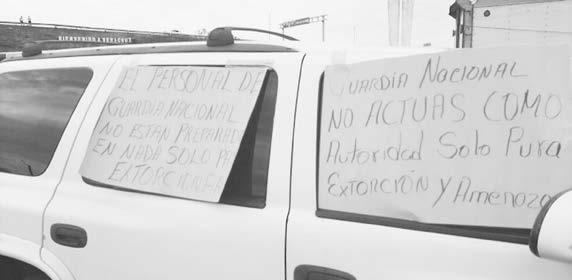 BIENVENIDO A VERACRUZ
EL PERSONAL DE
GUARDIA NACIONAL
NO ESTÁN PREPARAD
EN NADA SOLO PA
EXTORCIONA
GUARDIA NACIONAL
NO ACTUAS COMO
Autoridad Solo Pura
EXTORCIÓN y Amenaza